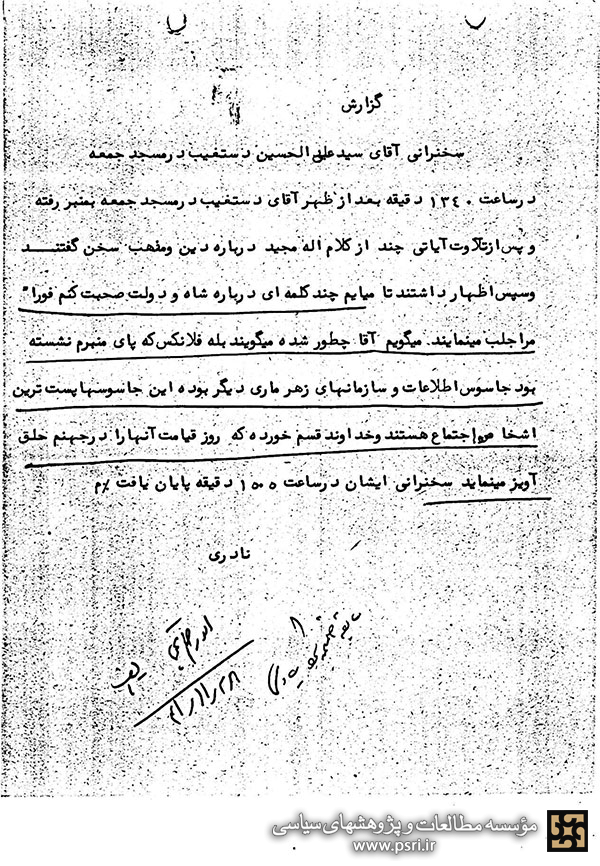 گزارش
سخنرانی آقای سید علی الحسین دستغیب در مسجد جمعه
در ساعت ۱۳٤۰ دقیقه بعد از ظهر آقای دستغیب در مسجد جمعه بمنبر رفته
و پس از تلاوت آیاتی چند از کلام اله مجید درباره دین و مذهب سخن گفتند
و سپس اظهار داشتند تا میایم چند کلمه ای درباره شاه و دولت صحبت کنم فورا"
مرا جلب مینمایند. میگویم آقا چطور شده میگویند بله فلانکس که پای منبرم نشسته
بود جاسوس اطلاعات و سازمانهای زهر ماری دیگر بوده این جاسوسها پست ترین
اشخاص اجتماع هستند و خداوند قسم خورده که روز قیامت آنها را در جهنم حلق
آویز مینماید سخنرانی ایشان در ساعت ۱۵۰۰ دقیقه پایان یافت ٪م
نادری
مؤسسه مطالعات و پژوهشهای سیاسی
www.psri.ir